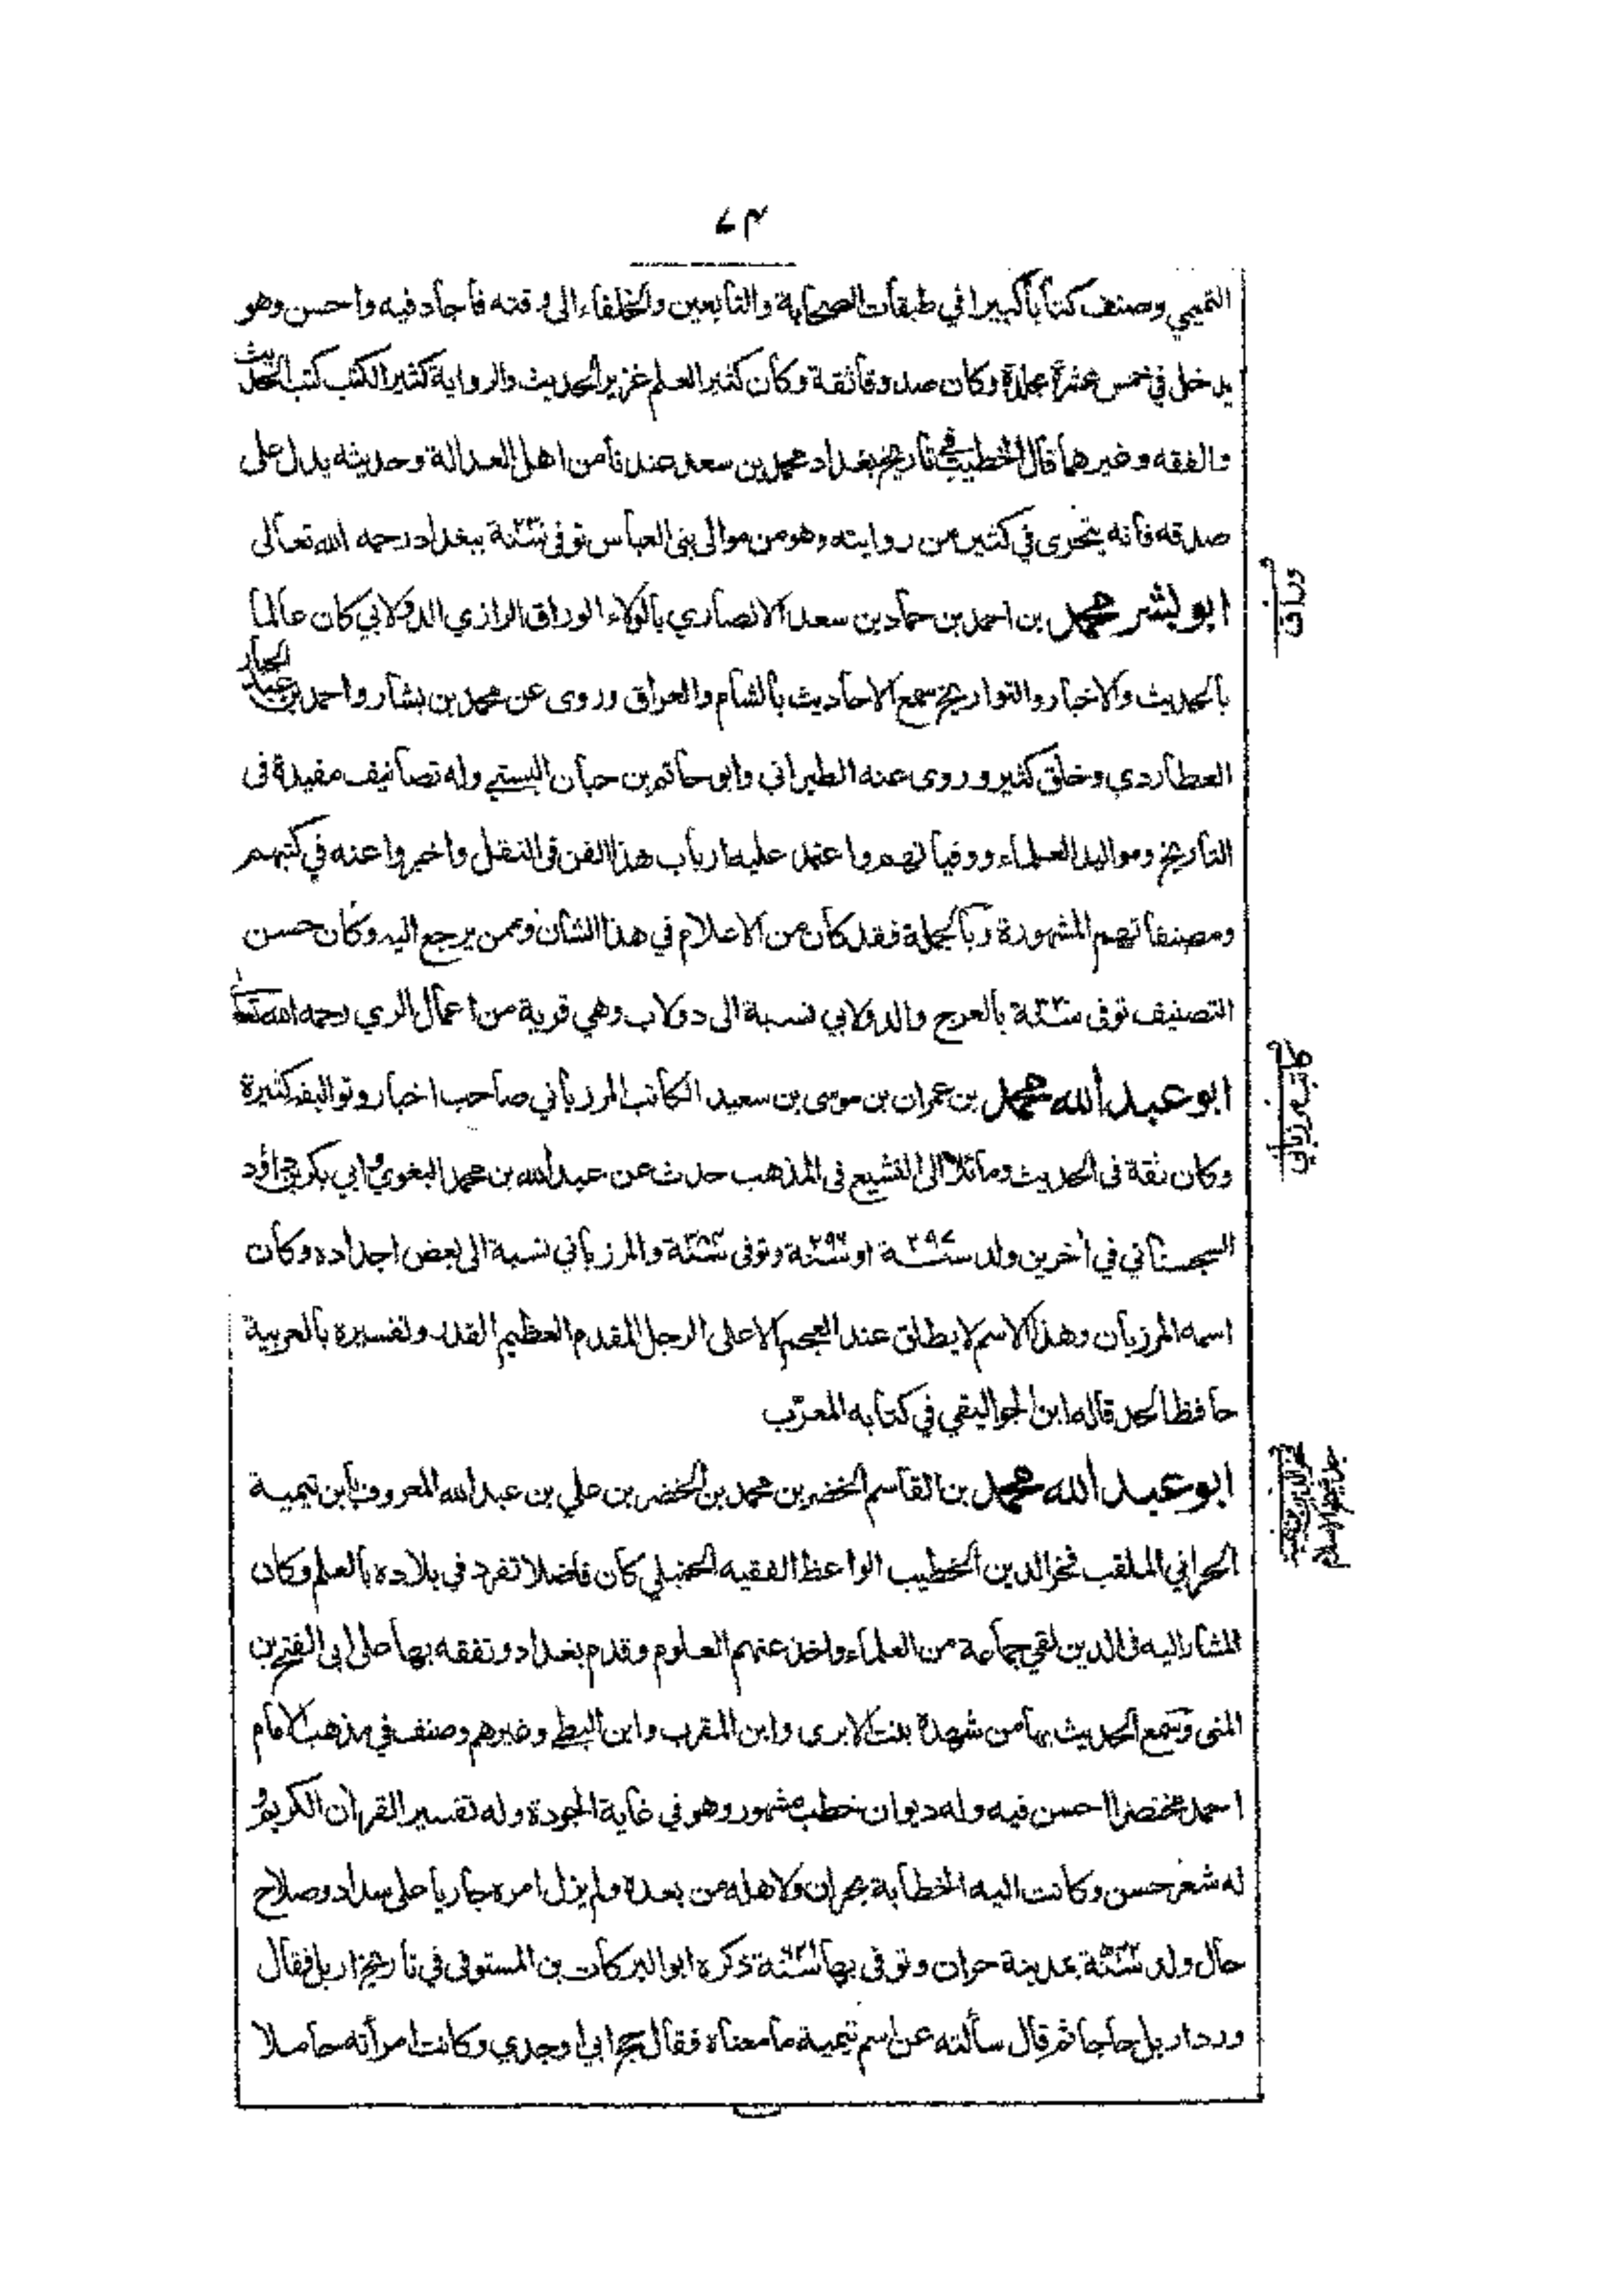 ٧٣
التميمي وصنف كتابا كبيرا في طبقات الصحابة والتابعين والخلفاء الى وقته فاجاد فيه واحسن وهو
يدخل في خمس عشرة مجلدة وكان صدوقا ثقة وكان كثير العلم غزير الحديث والرواية كثير الكتب كتب الحديث
والفقه وغيرهما قال الخطيب في تاريخ بغداد محمد بن سعد عندنا من اهل العدالة وحديثه يدل على
صدقه فانه يتحرى في كثير من روايته وهو من موالى بنى العباس توفى سنة ببغداد رحمه الله تعالى
ابو بشر محمد بن احمد بن حماد بن سعد الانصاري بالولاء الوراق الرازي الدولابي كان عالما
وراق
بالحديث والاخبار والتواريخ سمع الاحاديث بالشام والعراق وروى عن محمد بن بشار واحمد بن عبد الجبار
العطاردي وخلق كثير وروى عنه الطبراني وابو حاتم بن حبان البستي وله تصانيف مفيدة فى
التاريخ ومواليد العلماء ووفياتهم واعتمد عليه ارباب هذا الفن فى النقل واخبروا عنه في كتبهم
ومصنفاتهم المشهورة وبالجملة فقد كان من الاعلام في هذا الشان وممن يرجع اليه وكان حسن
التصنيف توفى سنة بالعرج والدولابي نسبة الى دولاب وهي قرية من اعمال الري رحمه الله تعالى
ابو عبد الله محمد بن عمران بن موسى بن سعيد الكاتب المرزباني صاحب اخبار وتواليفه كثيرة
كاتب مرزباني
وكان ثقة فى الحديث ومائلا الى التشيع فى المذهب حدث عن عبد الله بن محمد البغوي وابي بكر بن داؤد
السجستاني في آخرين ولد سنة ٢٩٧ او سنة ٢٩٦ وتوفى سنة والمرزباني نسبة الى بعض اجداده وكان
اسمه المرزبان وهذا الاسم لا يطلق عند العجم الا على الرجل المقدم العظيم القدر وتفسيره بالعربية
حافظ الحد قاله ابن الجواليقي في كتابه المعرّب
ابو عبد الله محمد بن القاسم الخضر بن محمد بن الخضر بن علي بن عبد الله المعروف بابن تيمية
الحراني الملقب فخر الدين الخطيب الواعظ الفقيه الحنبلي كان فاضلا تفرد في بلاده بالعلم وكان
المشار اليه فى الدين لقي جماعة من العلماء واخذ عنهم العلوم وقدم بغداد وتفقه بها على ابى الفتح بن
المنى وسمع الحديث بها من شهدة بنت الابرى وابن المقرب وابن البطي وغيرهم وصنف في مذهب الامام
احمد مختصرا احسن فيه وله ديوان خطب مشهور وهو في غاية الجودة وله تفسير القران الكريم و
له شعر حسن وكانت اليه الخطابة بحران ولاهله من بعده ولم يزل امره جاريا على سداد وصلاح
حال ولد سنة بمدينة حران وتوفى بها سنة ذكره ابو البركات بن المستوفى في تاريخ اربل فقال
ورد اربل حاجا ثم قال سألته عن اسم تيمية ما معناه فقال حج ابي او جدي وكانت امرأته حاملا